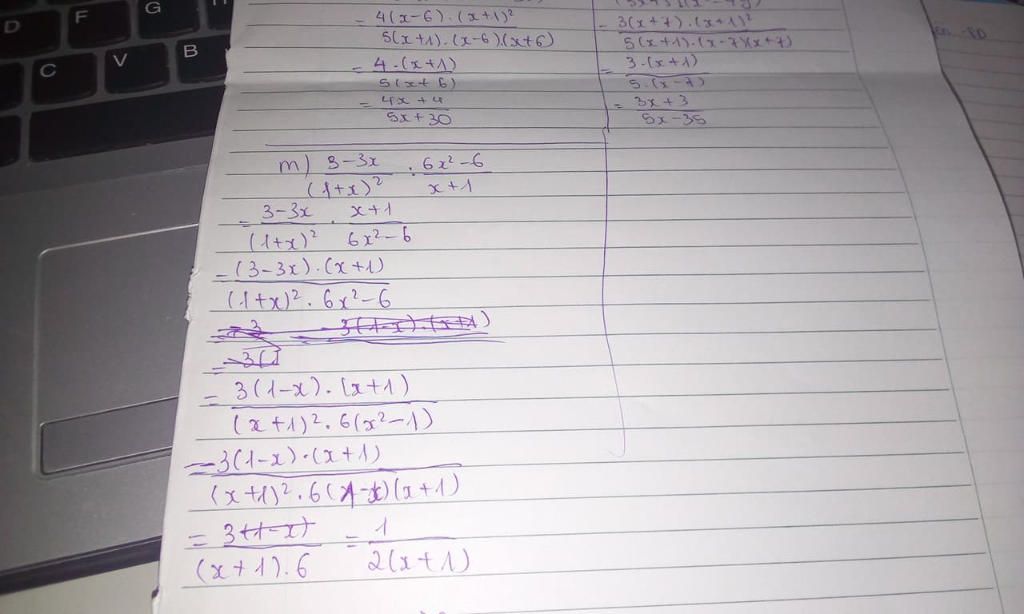 D F G
C V B
= 4(x-6).(x+1)² / 5(x+1).(x-6).(x+6)
= 4.(x+1) / 5(x+6)
= 4x+4 / 5x+30
= 3(x+7).(x+1)² / 5(x+1).(x-7)(x+7)
= 3.(x+1) / 5.(x-7)
= 3x+3 / 5x-35
m) 3-3x / (1+x)² : 6x²-6 / x+1
= 3-3x / (1+x)² . x+1 / 6x²-6
= (3-3x).(x+1) / (1+x)² . 6x²-6
= 3(1-x).(x+1) / (x+1)² . 6(x²-1)
= -3(1-x).(x+1) / (x+1)² . 6(1-x)(x+1)
= 3(1-x) / (x+1).6 = 1 / 2(x+1)